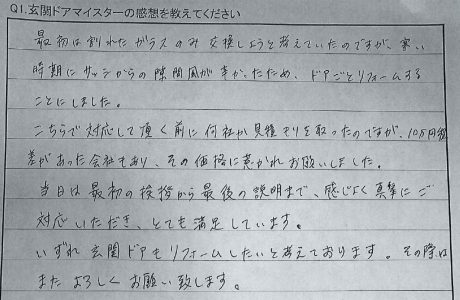 Q1.玄関ドアマイスターの感想を教えてください
最初は割れたガラスのみ交換しようと考えていたのですが、寒い
時期にサッシからの隙間風が辛かったため、ドアごとリフォームする
ことにしました。
こちらで対応して頂く前に何社か見積もりを取ったのですが、10万円程
差があった会社もあり、その価格に惹かれお願いしました。
当日は最初の挨拶から最後の説明まで、感じよく真摯にご
対応いただき、とても満足しています。
いずれ玄関ドアもリフォームしたいと考えております。その際は
またよろしくお願い致します。